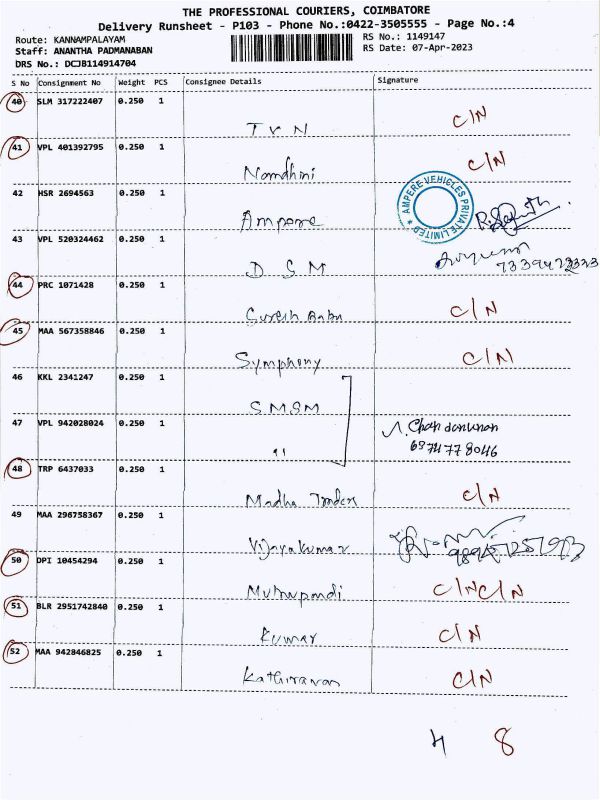 THE PROFESSIONAL COURIERS, COIMBATORE
Delivery Runsheet - P103 - Phone No.:0422-3505555 - Page No.:4
Route: KANNAMPALAYAM
RS No.: 1149147
Staff: ANANTHA PADMANABAN
RS Date: 07-Apr-2023
DRS No.:
S No Consignment No Weight PCS Consignee Details Signature
40 SLM 317222407 0.250 1 T V N C/N
41 VPL 401392795 0.250 1 Nandhini C/N
42 HSR 2694563 0.250 1 Ampere
AMPERE VEHICLES PRIVATE LIMITED
43 VPL 520324462 0.250 1 D S M
44 PRC 1071428 0.250 1 Suresh Babu C/N
45 MAA 567358846 0.250 1 Symphony C/N
46 KKL 2341247 0.250 1 S M S M
47 VPL 942028024 0.250 1 "
48 TRP 6437033 0.250 1 Madha Traders C/N
49 MAA 296758367 0.250 1 Vijayakumar
50 DPI 10454294 0.250 1 Muthupandi C/N C/N
51 BLR 2951742840 0.250 1 Kumar C/N
52 MAA 942846825 0.250 1 Kathiravan C/N
4 8